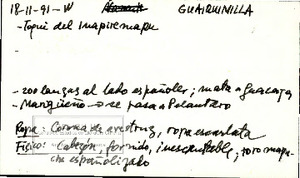 18-11-91-W GUAIQUINILLA
- Toqui del Inapiremapu
- 200 lanzas al lado españoles; mata a Guacaya
- Marigüeno → se pasa a Pelantaro
Ropa: Corona de avestruz, ropa escarlata
Físico: Cabezón, fornido, inescrutable; toro mapu-
che españolizado